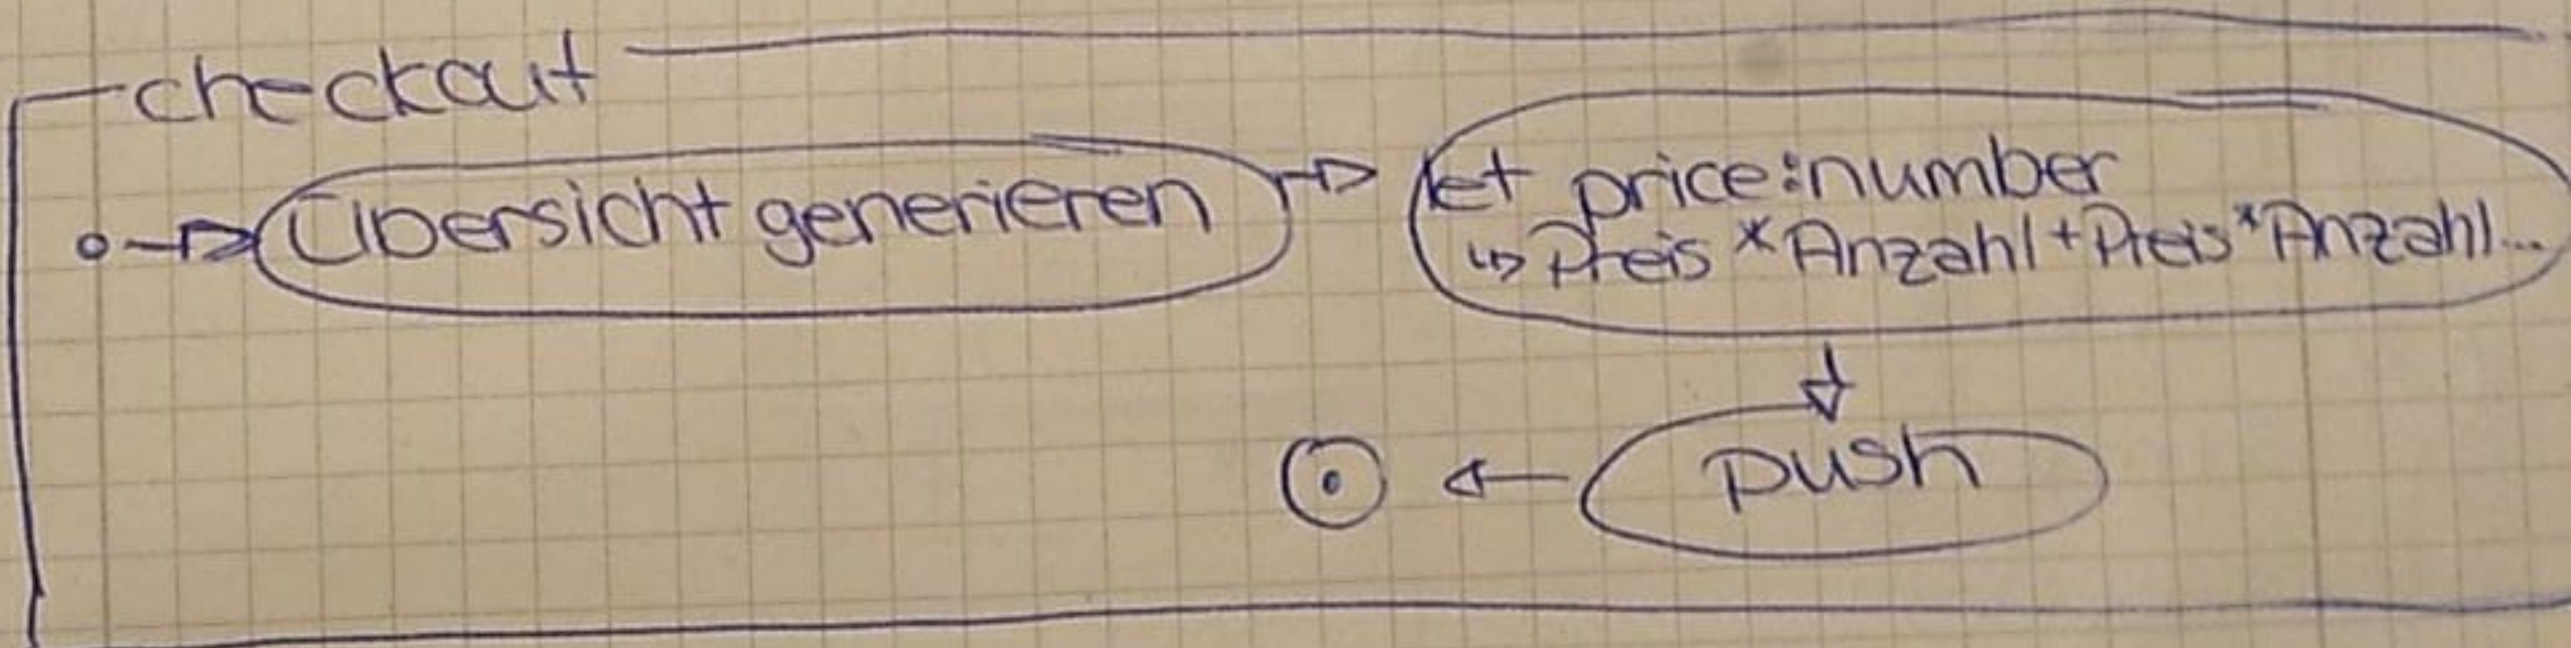 checkout
Übersicht generieren
let price:number
↳ Preis * Anzahl + Preis * Anzahl...
push